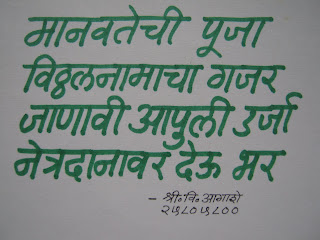 मानवतेची पूजा
विठ्ठलनामाचा गजर
जाणावी आपुली उर्जा
नेत्रदानावर देऊ भर
- श्री॰ वि॰ आगाशे
२५८०५८००